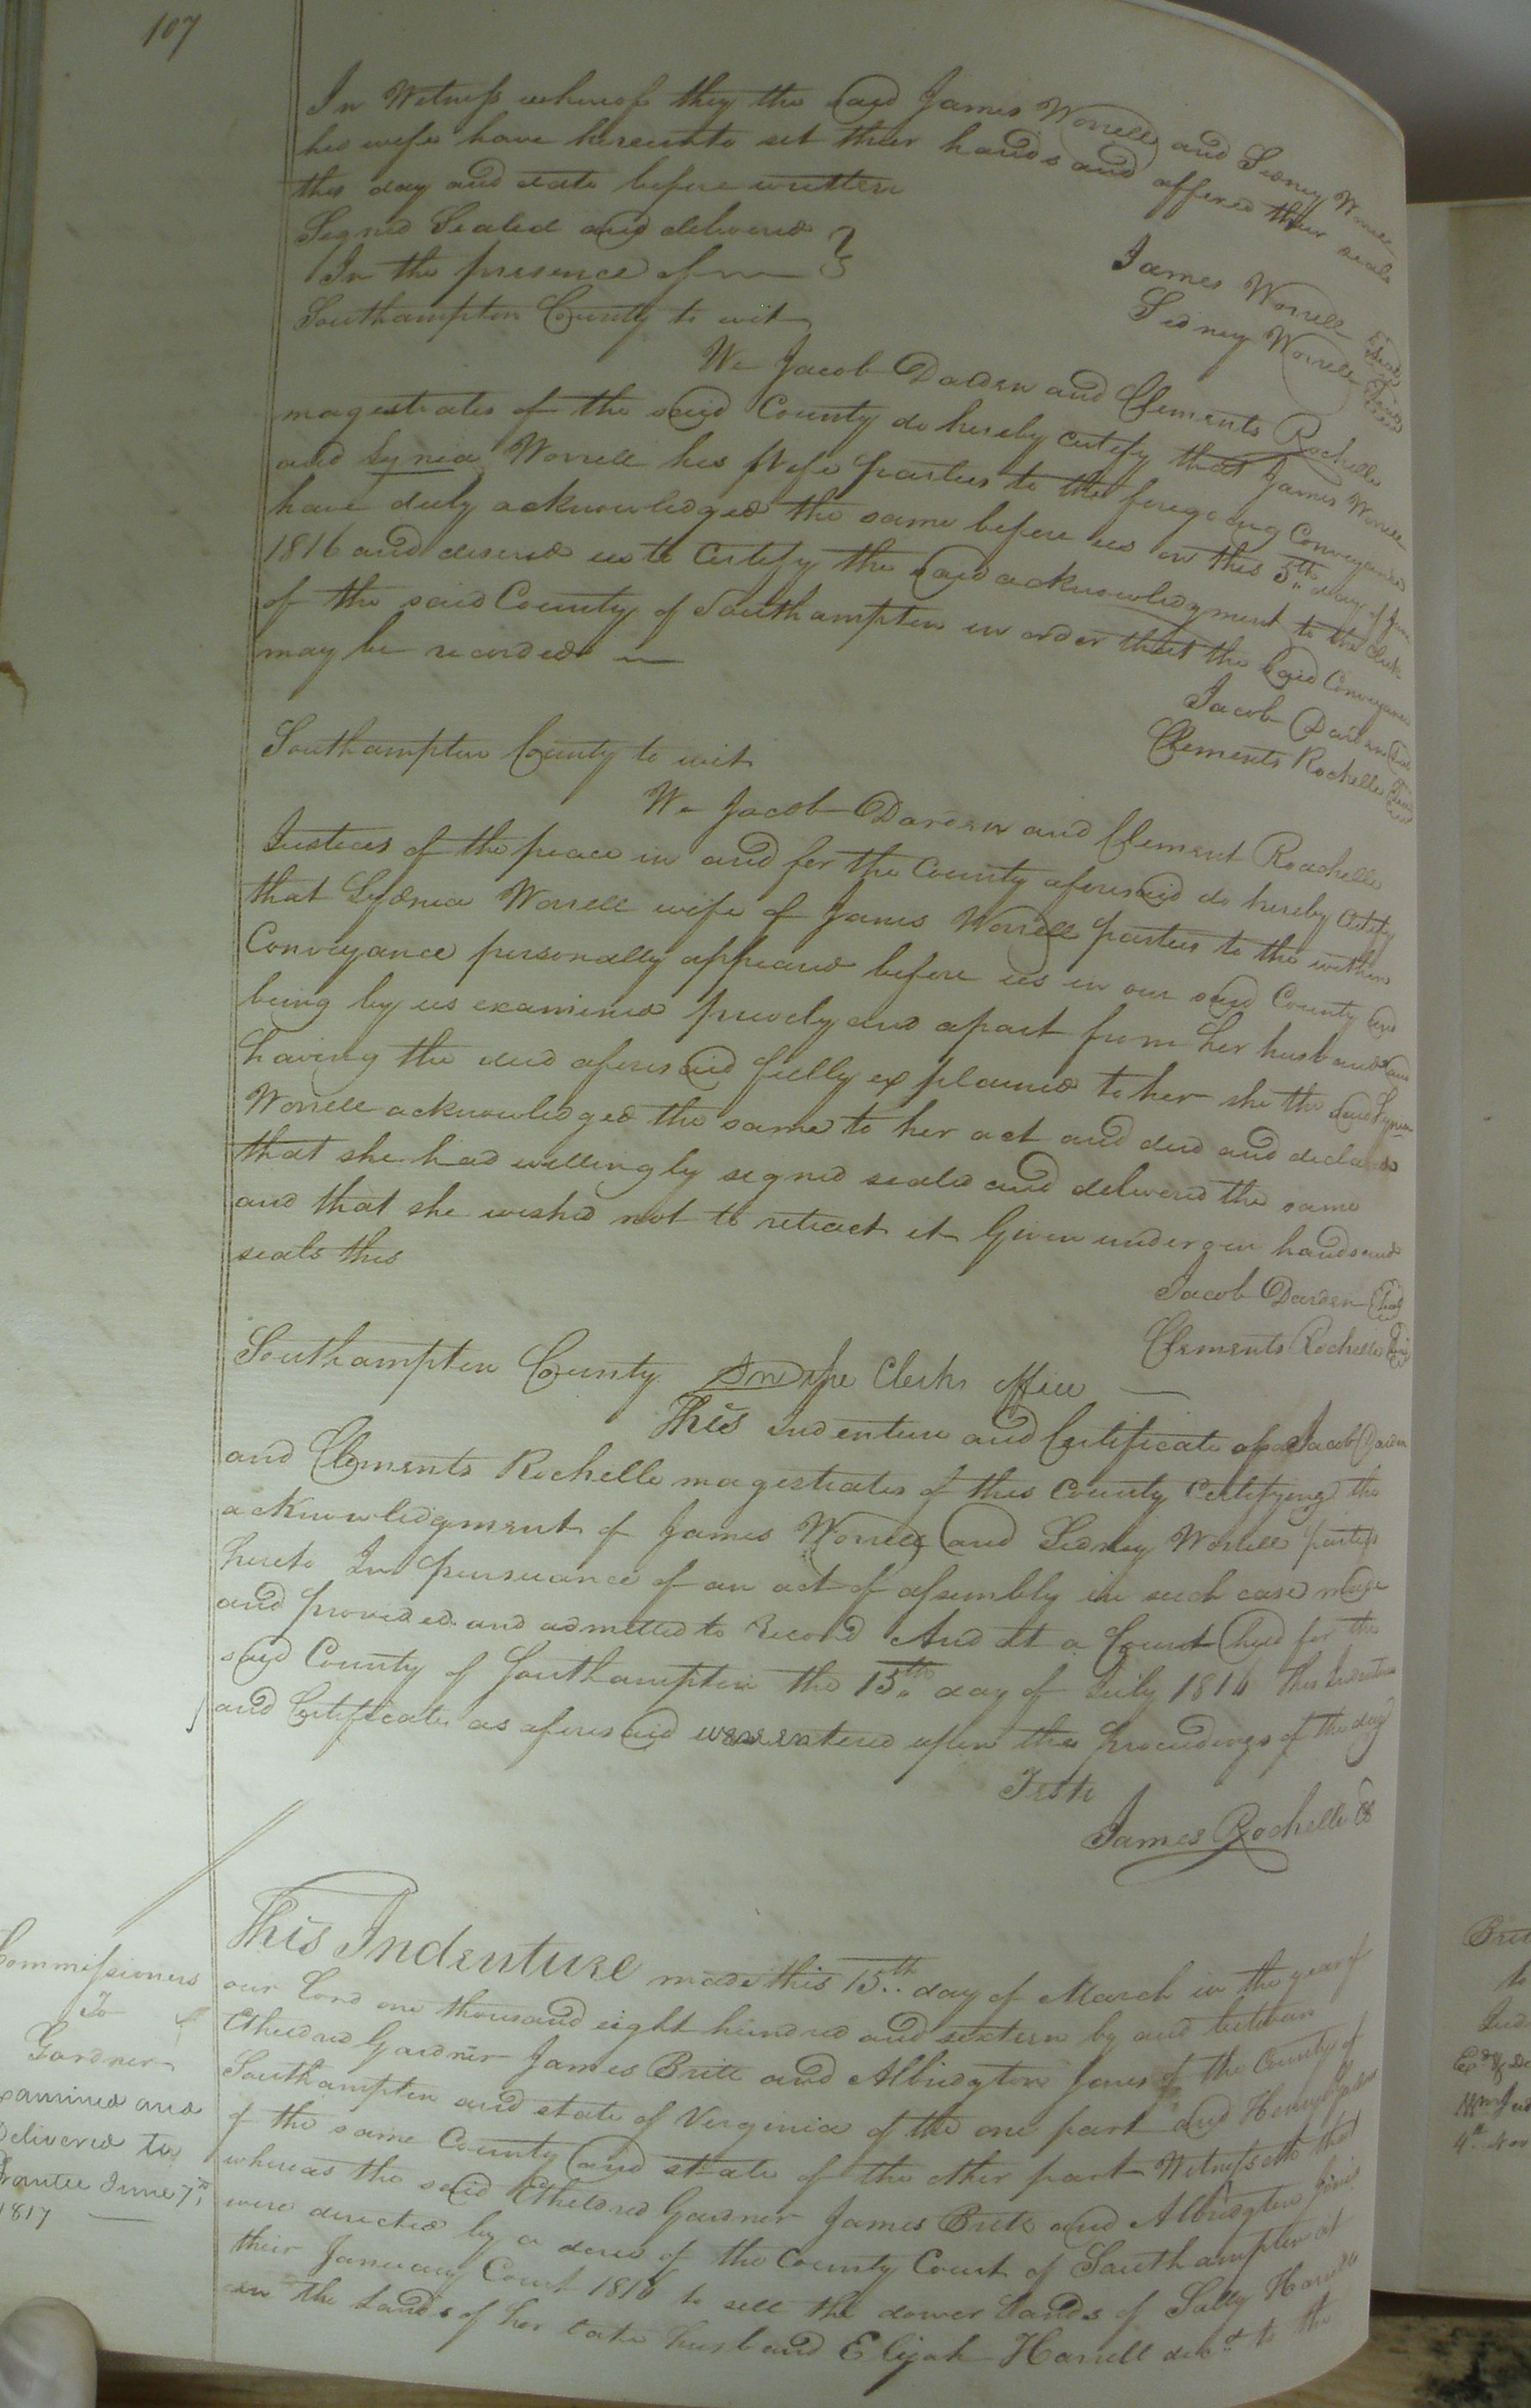 107
In Witness whereof they the said James Worrell and Sidney Worrell
his wife have hereunto set their hands and affixed their seals
the day and date before written
Signed Sealed and delivered
In the presence of
James Worrell Seal
Sidney Worrell Seal
Southampton County to wit
We Jacob Darden and Clements Rochelle
magestrates of the said County do hereby certify that James Worrell
and Synia Worrell his Wife parties to the foregoing Conveyance
have duly acknowledged the same before us on this 5th day of June
1816 and desired us to Certify the said acknowledgment to the Clerk
of the said County of Southampton in order that the said Conveyance
may be recorded
Jacob Darden Seal
Clements Rochelle Seal
Southampton County to wit
We Jacob Darden and Clement Roachelle
Justices of the peace in and for the County aforesaid do hereby Certify
that Lydnia Worrell wife of James Worrell parties to the within
Conveyance personally appeared before us in our said County and
being by us examined prively and apart from her husband and
having the deed aforesaid fully explained to her she the said Synia
Worrell acknowledged the same to her act and deed and declared
that she had willingly signed sealed and delivered the same
and that she wished not to retract it Given under our hands and
seals this
Jacob Darden Seal
Clements Rochelle Seal
Southampton County In the Clerks office
This Indenture and Certificate of Jacob Darden
and Clements Rochelle magestrates of this County Certifying the
acknowledgment of James Worrell and Sidney Worrell parties
hereto In pursuance of an act of assembly in such case made
and provided and admitted to Record And At a Court held for the
said County of Southampton the 15th day of July 1816 This Indenture
and Certificate as aforesaid was entered upon the proceedings of the day
Teste
James Rochelle
Commissioners
To
Gardner
Examined and
Delivered to
Grantee June 7th
1817
This Indenture made this 15th day of March in the year of
our Lord one thousand eight hundred and sixteen by and between
Etheldred Gardner James Britt and Albridgton Jones of the County of
Southampton and state of Virginia of the one part and Henry
of the same County and state of the other part Witnesseth that
whereas the said Etheldred Gardner James Britt and Albridgton Jones
were directed by a decree of the County Court of Southampton at
their January Court 1816 to sell the dower lands of Sally Harrell
in the Lands of her late husband Elijah Harrell decd to the
Brit
to
4th Nov